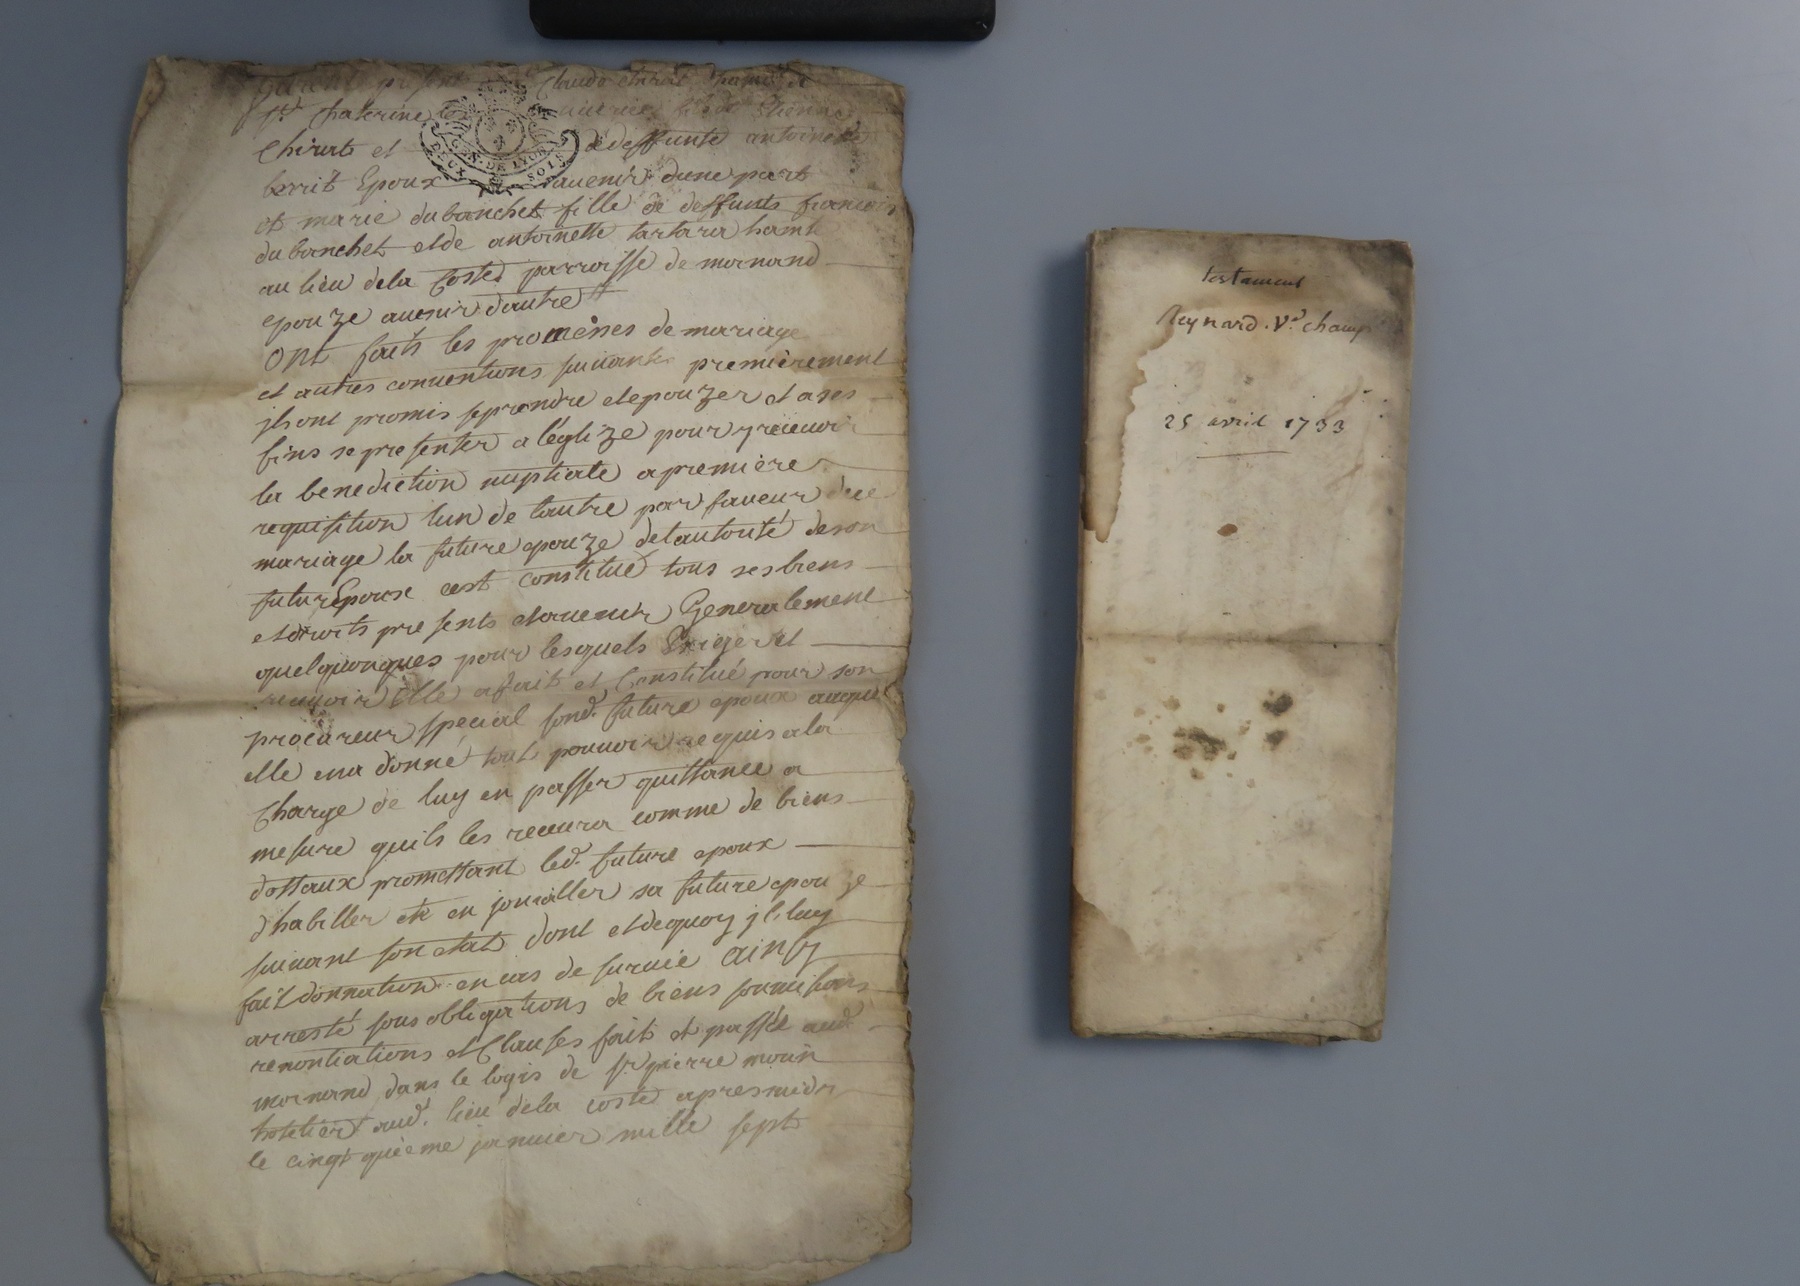 Claude chirat
St. Catherine Etienne
Chirat et dedeffunte antoinette
berrit Epoux avenir dune part
et marie dubanchet fille de deffunts francois
dubanchet et de antoinette tartara habt.
au lieu de la Coste parroisse de mornand
epouze auenir d'autre
Ont faits les promesses de mariage
et autres conuentions suiuantes premièrement
jls ont promis se prendre et epouzer et a ses
fins se presenter a léglize pour y receuoir
la benediction nuptiale a première
requisition lun de lautre par faueur de ce
mariage la future epouze de lautorité de son
futur Epoux cest constitué tous ses biens
et droits presents et auenir Generalement
quelquonques pour lesquels Exiger et
receuoir Elle a fait et Constitué pour son
procureur special sond. future epoux auquel
elle en a donné tout pouuoir requis a la
Charge de luy en passer quittance a
mesure quils les receura comme de biens
dottaux promettant led. future epoux
d'habiller et en joualler sa future epouze
suiuant son etat dont et de quoy jl luy
fait donnation en cas de suruie ainsy
arresté sous obligations de biens soumissions
renontiations et Clauses fait et passée aud.
mornand dans le logis de Sr. pierre morin
hotelier aud. lieu de la coste apres midy
le cingt quième januier mille sept
GEN. DE LYON
DEUX SOLS
testament
Reynard. Ve. champ
25 avril 1733